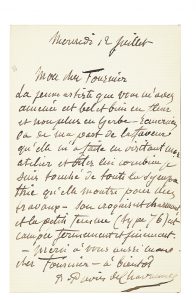 Mercredi 12 Juillet
Mon cher Fournier
La jeune artiste que vous m'avez
amenée est bel et bien en fleur
et non plus en herbe.
ça de ma part de la faveur
qu'elle m'a faite en visitant mon
atelier et dites lui combien je
suis touché de toute la sympa
thie qu'elle montre pour mes
travaux. son croquis
et la petite femme
campe fermement et finement.
Merci à vous aussi mon
cher Fournier - à bientôt
P. Puvis de Chavannes